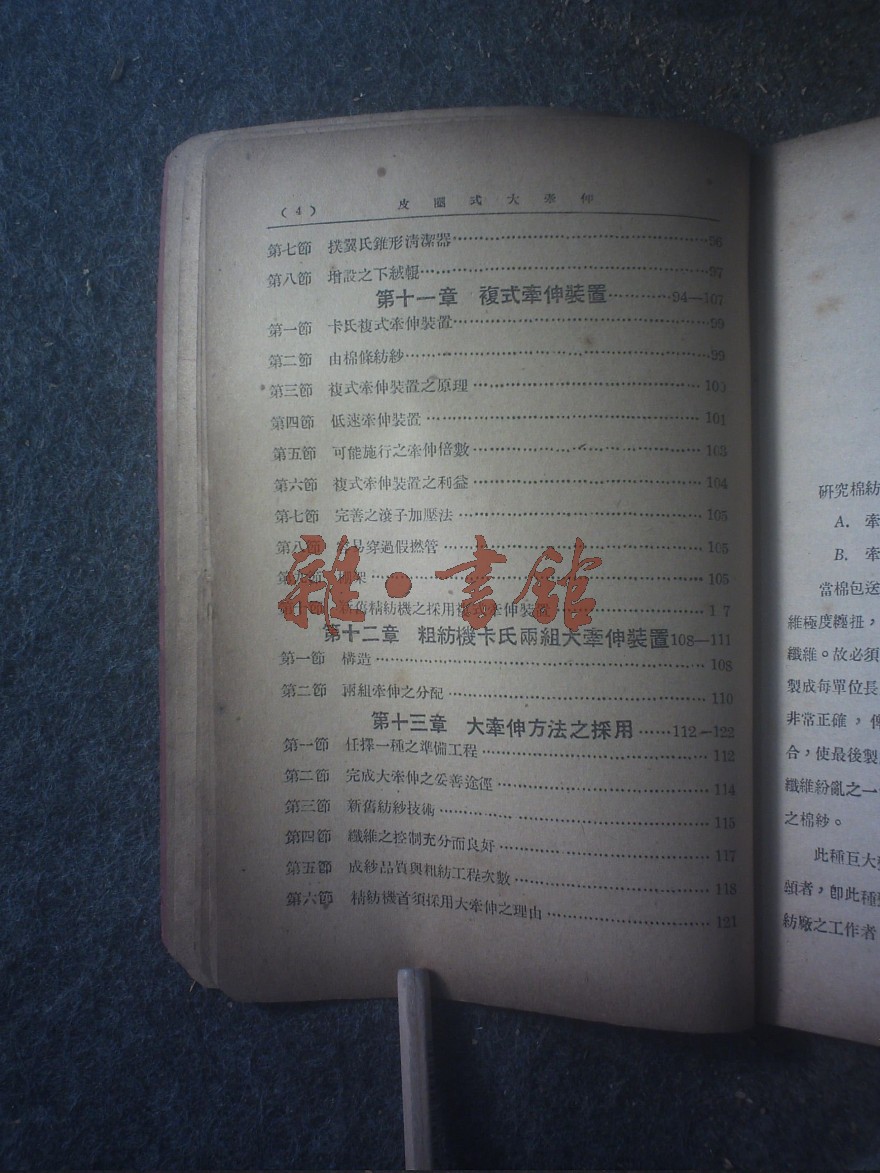 (4) 皮圈式大牽伸
第七節 撲翼氏錐形清潔器 96
第八節 增設之下絨輥 97
第十一章 複式牽伸裝置 94—107
第一節 卡氏複式牽伸裝置 99
第二節 由棉條紡紗 99
第三節 複式牽伸裝置之原理 100
第四節 低速牽伸裝置 101
第五節 可能施行之牽伸倍數 103
第六節 複式牽伸裝置之利益 104
第七節 完善之滾子加壓法 105
第八節 易穿過假撚管 105
第九節 架 105
第十節 新舊精紡機之採用複式牽伸裝置 1 7
第十二章 粗紡機卡氏兩組大牽伸裝置 108—111
第一節 構造 108
第二節 兩組牽伸之分配 110
第十三章 大牽伸方法之採用 112—122
第一節 任擇一種之準備工程 112
第二節 完成大牽伸之妥善途徑 114
第三節 新舊紡紗技術 115
第四節 纖維之控制充分而良好 117
第五節 成紗品質與粗紡工程次數 118
第六節 精紡機首須採用大牽伸之理由 121
雜·書館
研究棉紡
A. 牽
B. 牽
當棉包送
維極度纏扭，
纖維。故必須
製成每單位長
非常正確，俾
合，使最後製
纖維紛亂之一
之棉紗。
此種巨大
頭者，即此種
紡廠之工作者